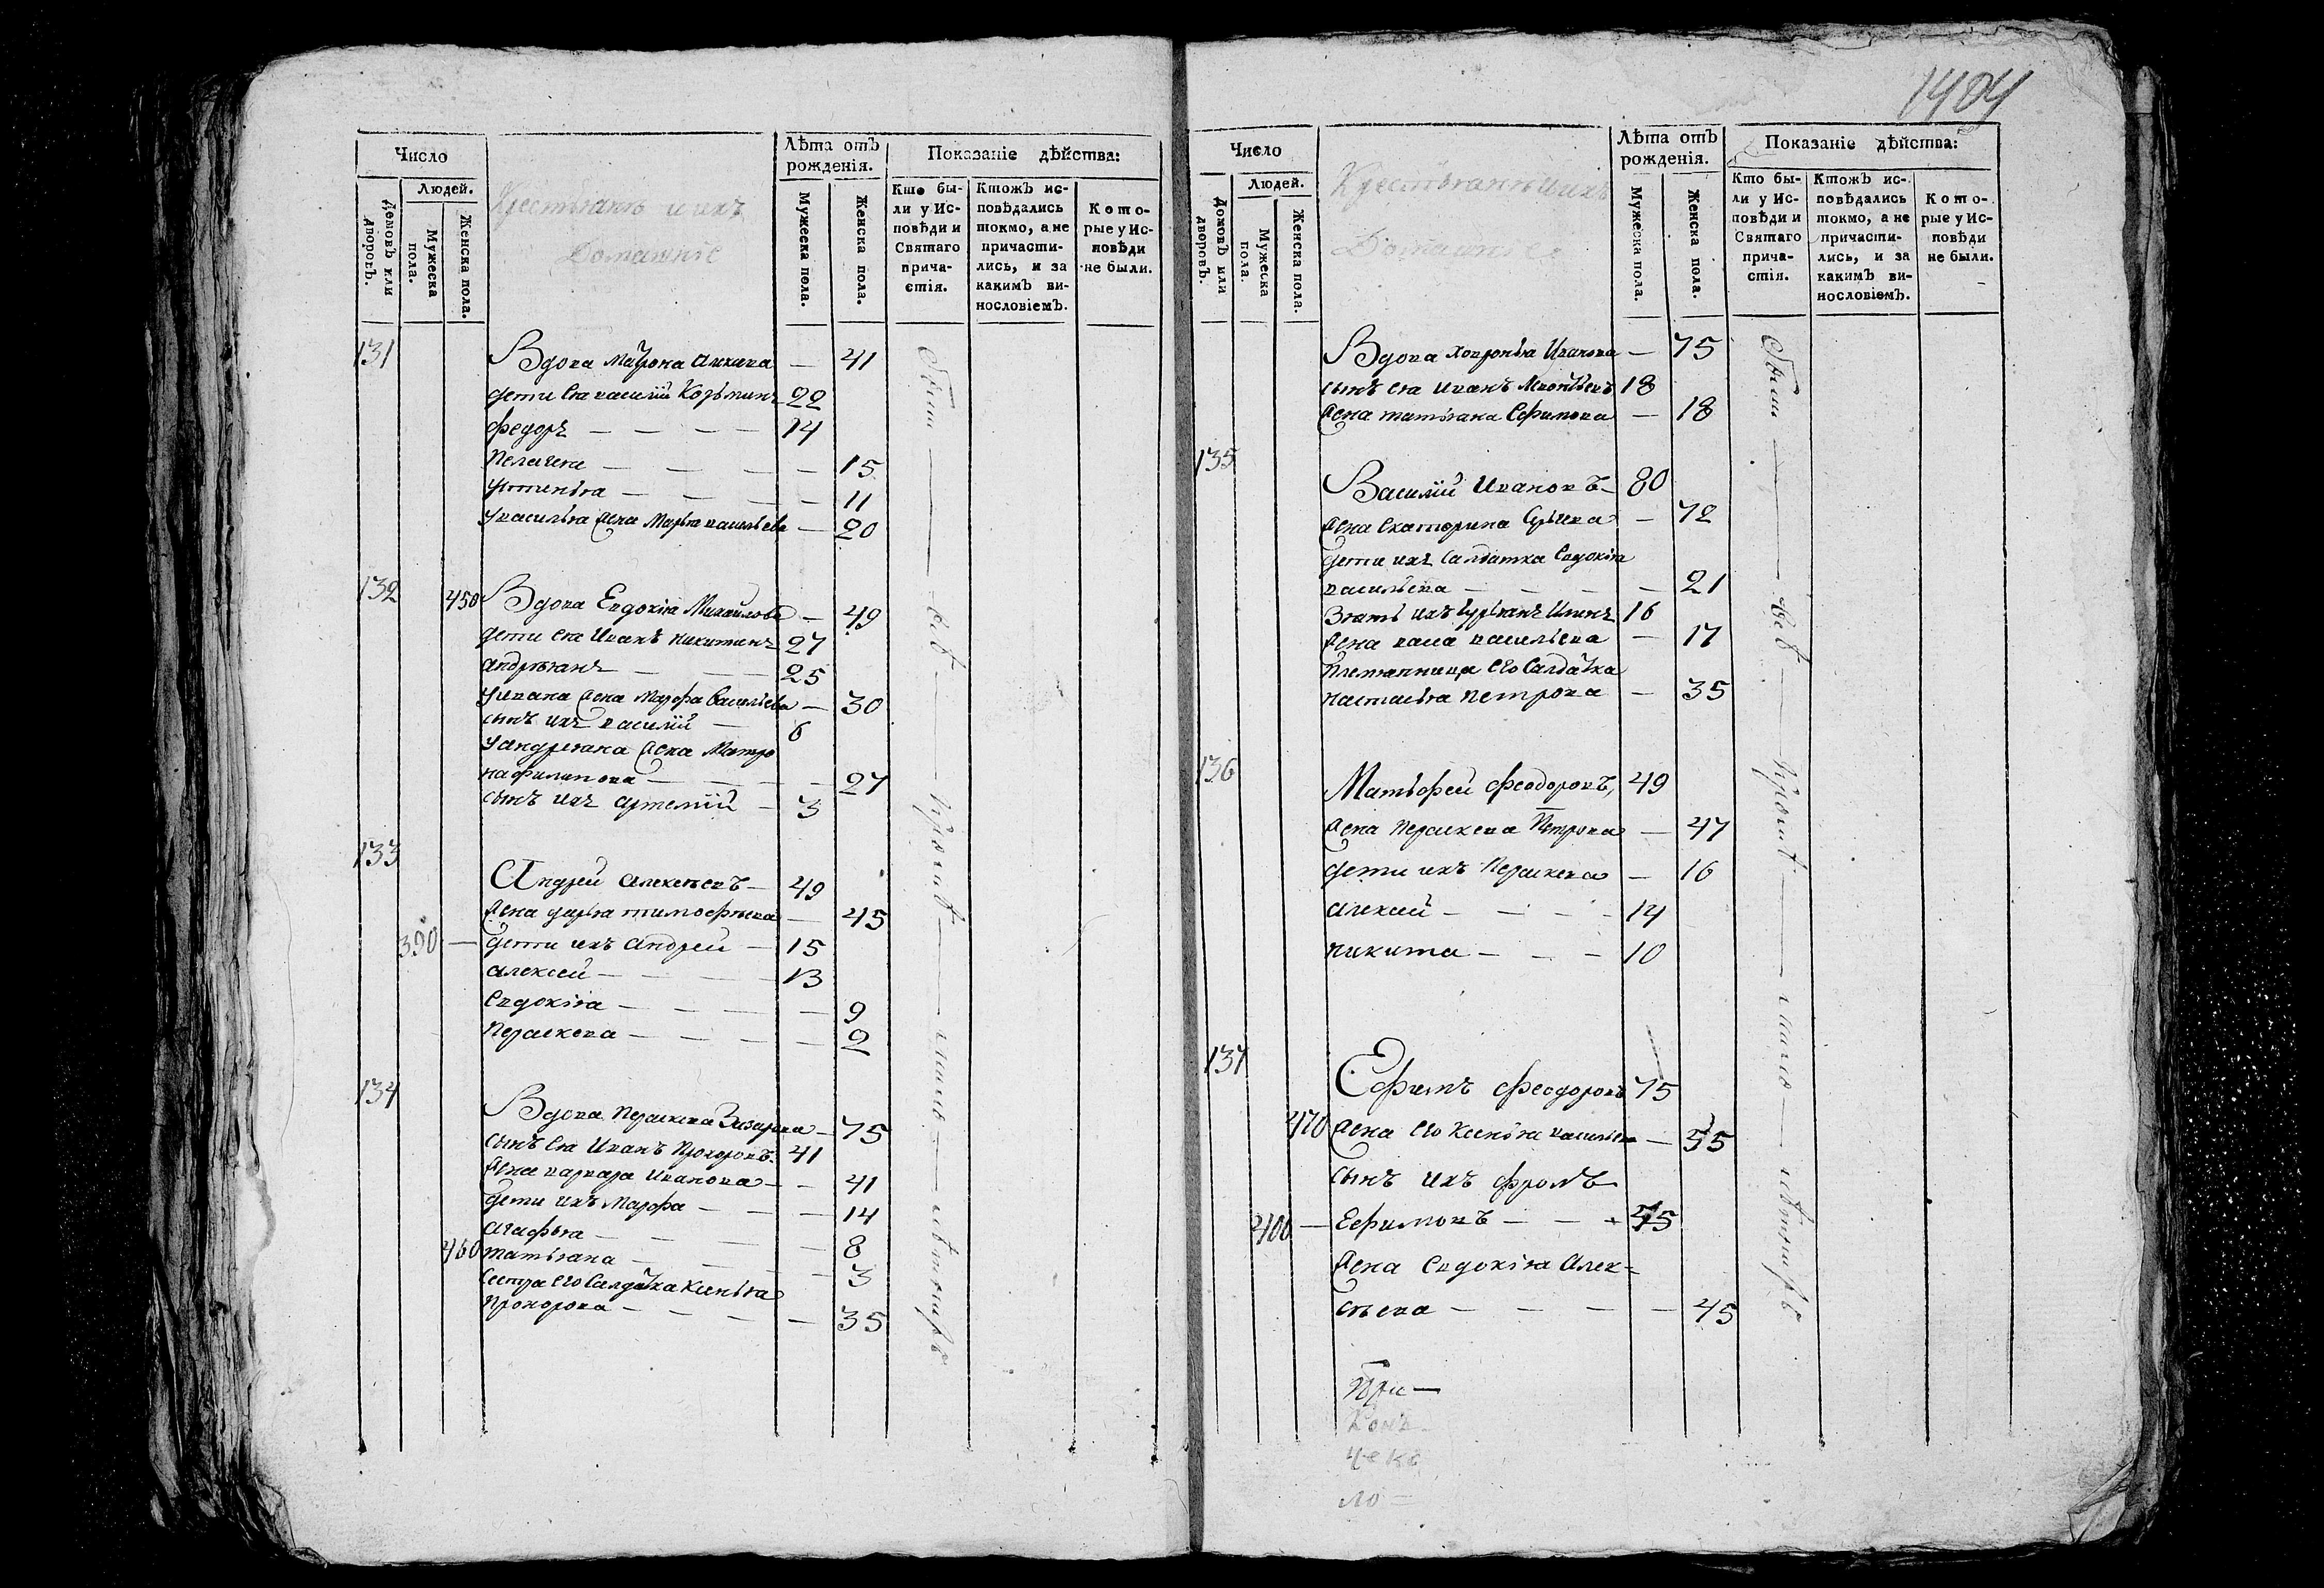 Число
Людей.
Домовъ или дворовъ.
Мужеска пола.
Женска пола.
Крестьяне и ихъ
Домашніе
Лѣта отъ рожденія.
Мужеска пола.
Женска пола.
Показаніе дѣйства:
Кто бы-
ли у Ис-
повѣди и
Святаго
прича-
стія.
Ктожъ ис-
повѣдались
токмо, а не
причасти-
лись, и за
какимъ ви-
нословіемъ.
Кото-
рые у Ис-
повѣди
не были.
131 Вдова Матрона — 41
дети Ея василій Козьминъ 22
федоръ — — — — 14
Пелагея — — — — 15
устинья — — — — 11
у василья жена Марья васильева — 20
132 450 Вдова Евдокія Михайлова — 49
дети Ея Иванъ никитинъ 27
андреянъ — — — 25
у ивана жена Марфа Васильева — 30
сынъ ихъ василій — 6
у андреяна жена Матро
на филипова — — — 27
сынъ ихъ артемій — 3
133 Андрей алексеевъ — 49
жена дарья тимофеева — 45
390 — дети ихъ андрей — 15
алексей — — — 13
Евдокія — — — — 9
Параскева — — — — 2
134 Вдова Параскева — 75
сынъ Ея Иванъ Прохоровъ 41
жена варвара Иванова — — 41
дети ихъ Марфа — — — 14
агафья — — — — 8
460 татьяна — — — — 3
сестра его Салдатка Ксенья
Прохорова — — — — 35
были — всѣ —
1404
Число
Людей.
Домовъ или дворовъ.
Мужеска пола.
Женска пола.
Крестьяне и ихъ
Домашніе
Лѣта отъ рожденія.
Мужеска пола.
Женска пола.
Показаніе дѣйства:
Кто бы-
ли у Ис-
повѣди и
Святаго
прича-
стія.
Ктожъ ис-
повѣдались
токмо, а не
причасти-
лись, и за
какимъ ви-
нословіемъ.
Кото-
рые у Ис-
повѣди
не были.
Вдова Ховронья Иванова — 75
сынъ Ея Иванъ 18
жена татьяна Ефимова — 18
135 Василій Ивановъ — 80
жена Екатерина — 72
дети ихъ Салдатка Евдокія
васильева — — — — 21
Зять ихъ 16
жена васа васильева — 17
Племянница его Салдатка
настасья Петрова — 35
136 Матьфей Феодоровъ, 49
жена Параскева Петрова — 47
дети ихъ Параскева — 16
алексей — — — 14
никита — — — 10
137 Ефимъ Феодоровъ 75
470 жена его Ксенья васильева — 55
сынъ ихъ фролъ
400 — Ефимовъ — — — 45
жена Евдокія Алек-
сеева — — — — 45
были — всѣ —